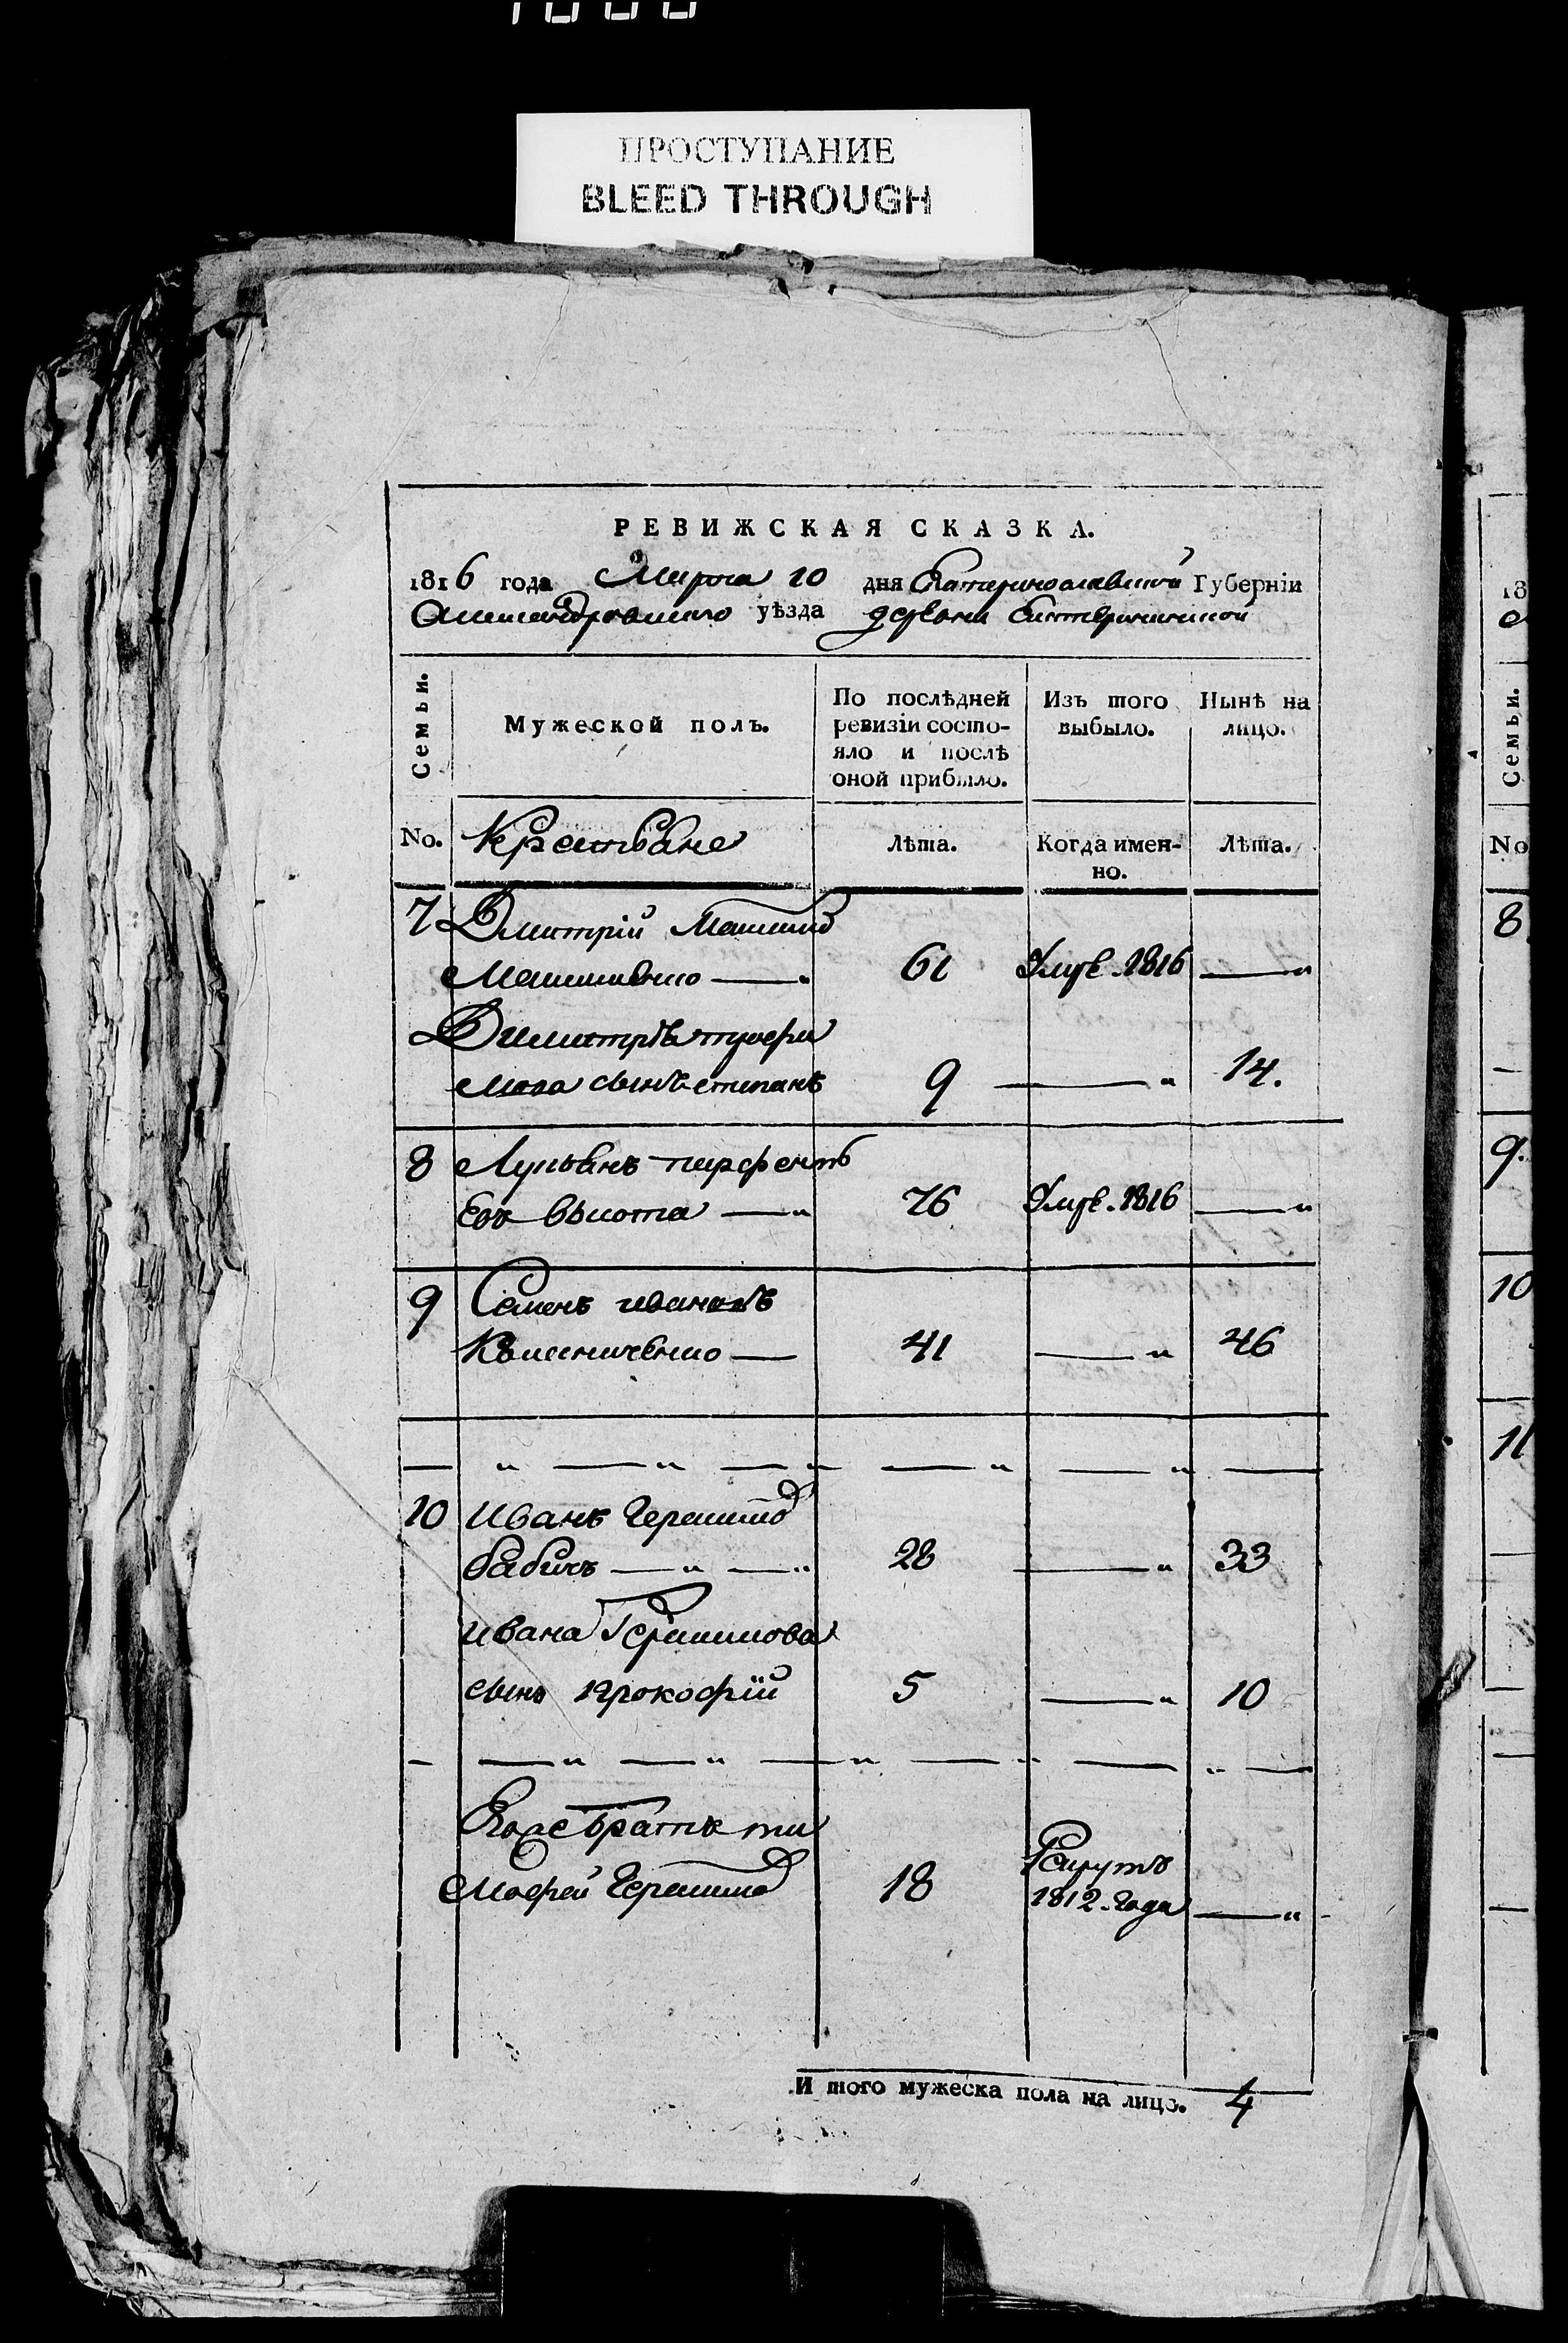 ПРОСТУПАНИЕ
BLEED THROUGH
РЕВИЖСКАЯ СКАЗКА.
1816 года Марта 10 дня Екатеринославской Губерніи
Александровскаго уѣзда деревни
Семьи. Мужеской полъ. По послѣдней ревизіи состояло и послѣ оной прибыло. Изъ того выбыло. Нынѣ на лицо.
No. Крестьяне Лѣта. Когда именно. Лѣта.
7 Дмитрій
61 Умре. 1816 — "
Дмитрія
сынъ степанъ 9 — " 14.
8 Лукьянъ парфенть
евъ высота — " 76 Умре. 1816 — "
9 Семенъ ивановъ
Колесниченко — 41 — " 46
— " — " — " — " — " —
10 Иванъ Герасимо
бабичъ — " — " 28 — " 33
Ивана Герасимова
сынъ прокофій 5 — " 10
— — " — " — " — " — " —
Его же братъ ти
мофей Герасимо 18 Рекрутъ
1812. года — "
И того мужеска пола на лицо. 4
18
Семьи.
No
8.
9.
10
11